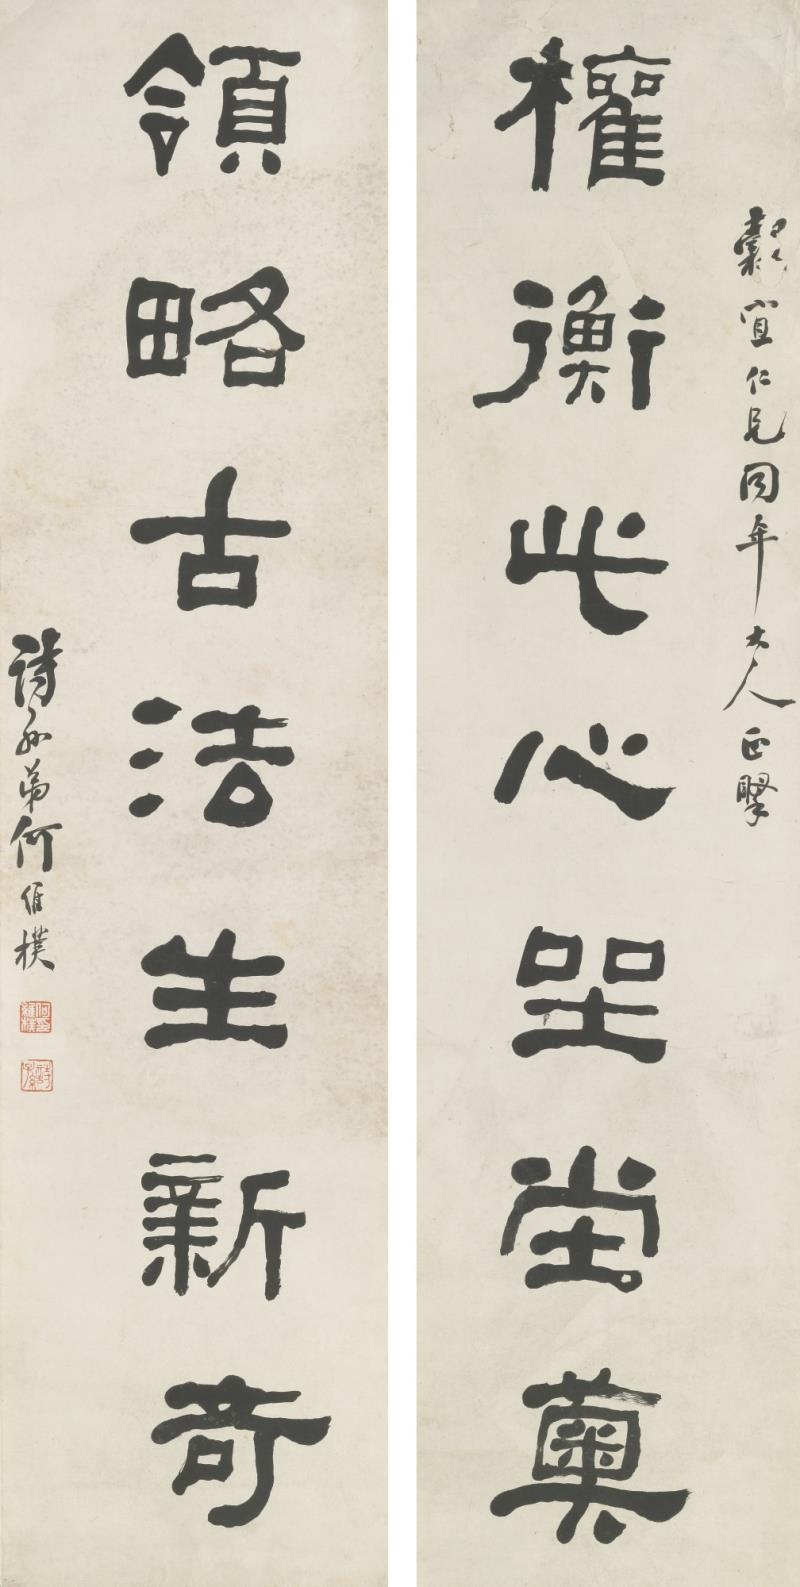 宜仁兄同年大人正擥
權衡此心坐堂奧
領略古法生新奇
詩孫弟何維樸
何印維樸
詩孫